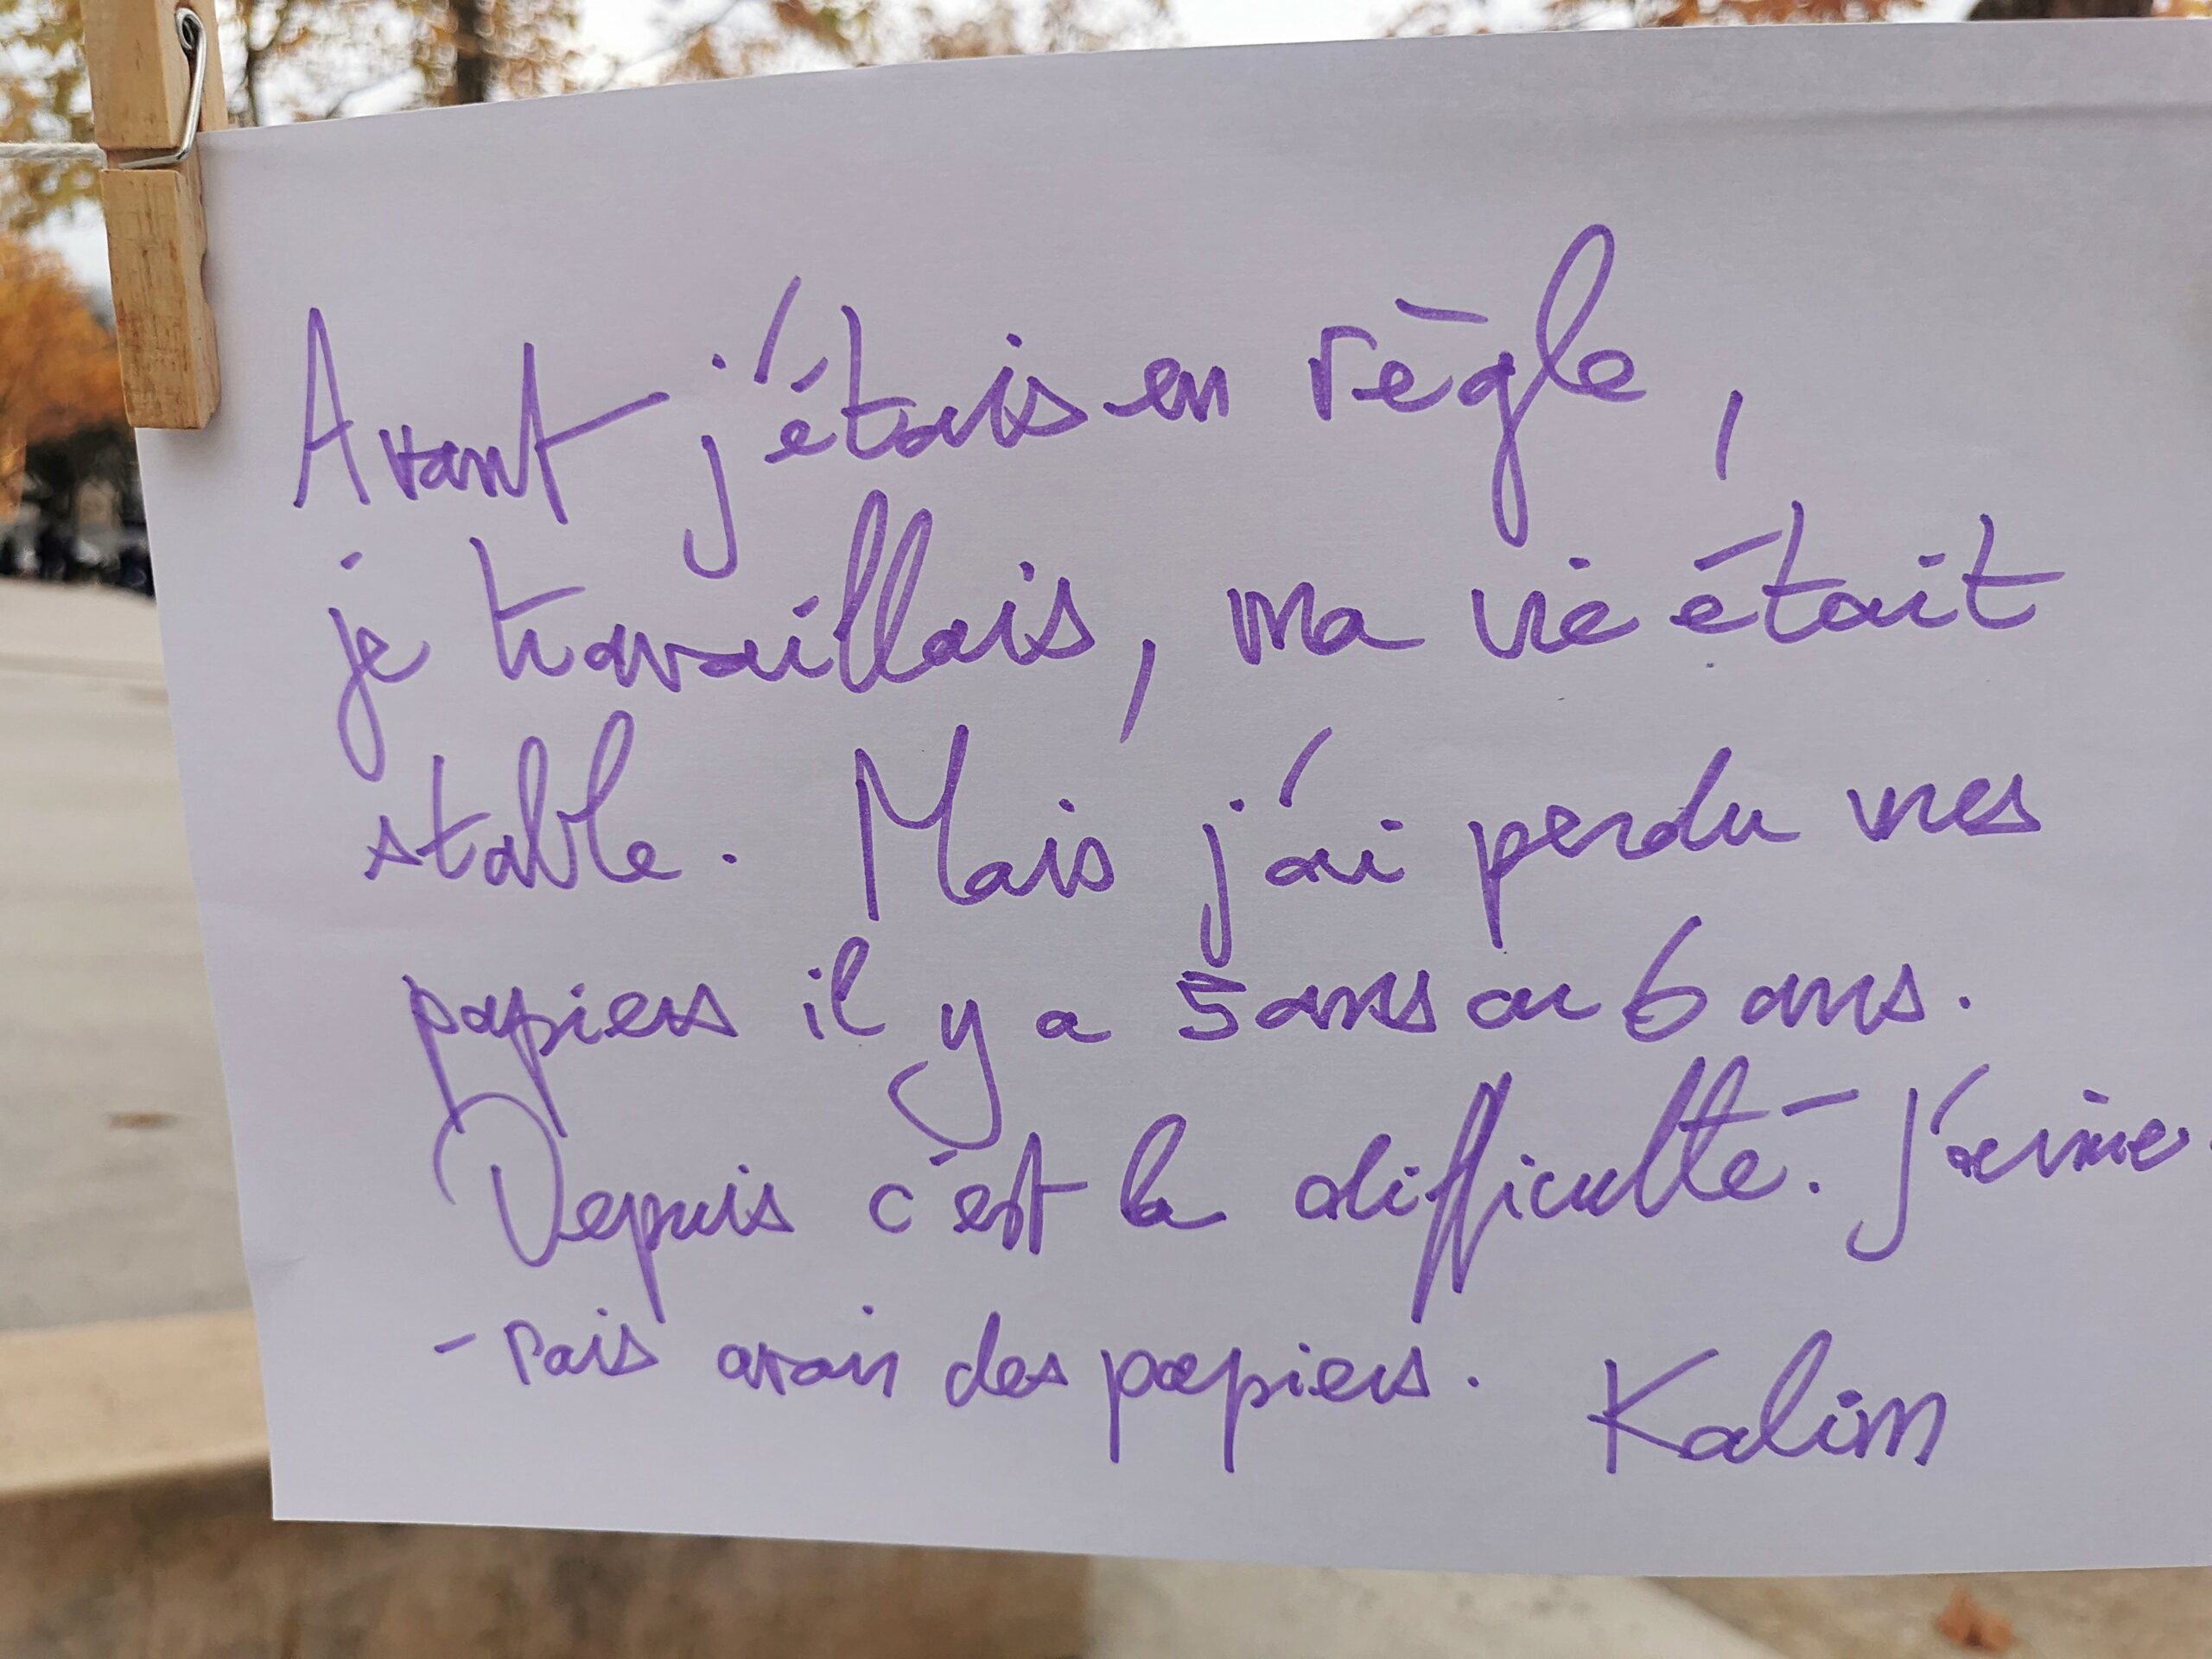 Avant j'étais en règle,
je travaillais, ma vie était
stable. Mais j'ai perdu mes
papiers il y a 5 ans ou 6 ans.
Depuis c'est la difficulté. J'aime
-rais avoir des papiers. Kalim